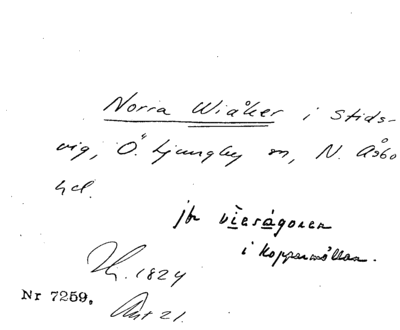 Norra Wiåker i Stids-
vig, Ö. Ljungby sn, N. Åsbo
hd.
jfr vieragoren
i Kopparmöllan.
1824
Nr 7259. Akt 21.